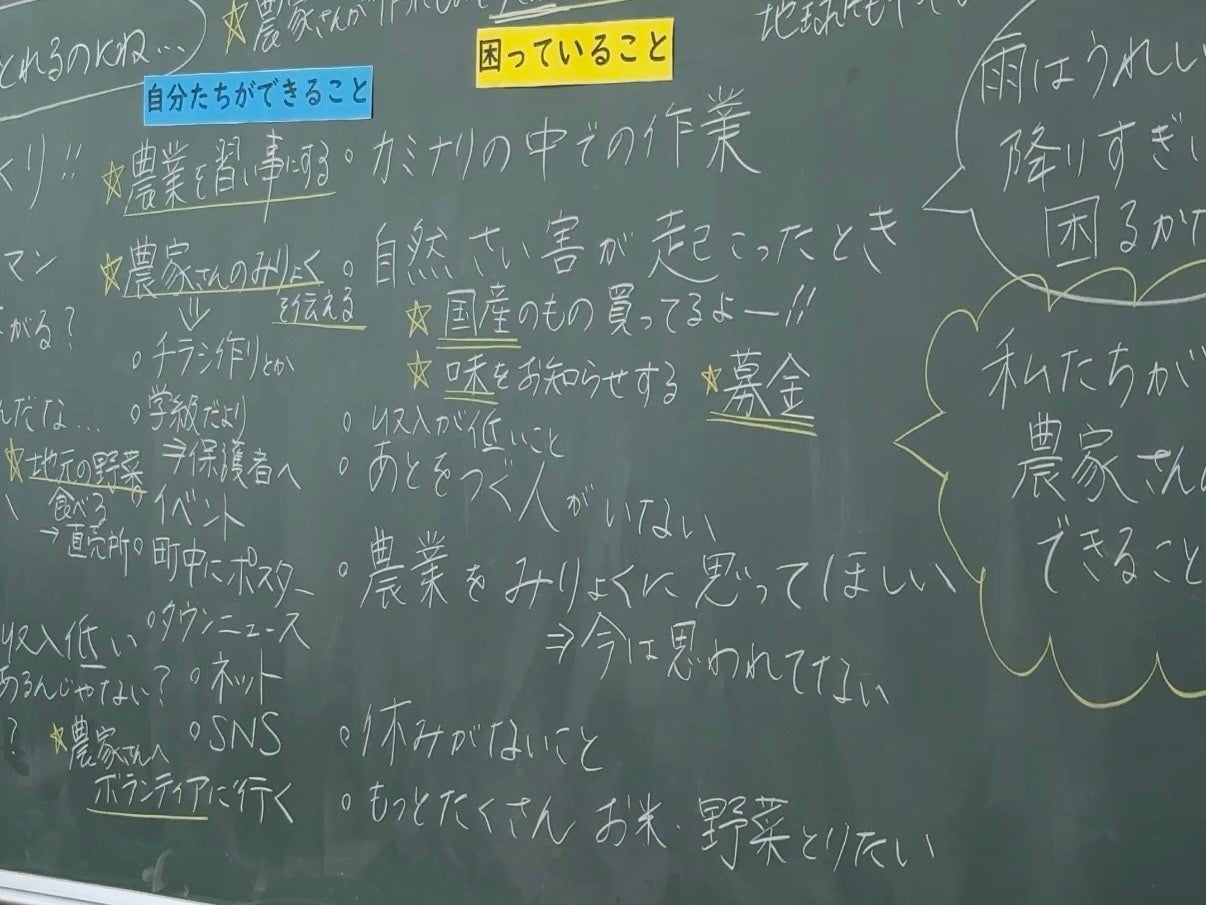 とれるのにね…
☆農家さんが
困っていること
自分たちができること
くり!!
☆農業を習い事にする
マン
☆農家さんのみりょく
を伝える
⇓
がる?
○チラシ作りとか
んだな…
○学級だより
⇒保護者へ
☆地元の野菜
食べる
→直売所
○イベント
○町中にポスター
○タウンニュース
収入低い
あるんじゃない?
○ネット
?
○SNS
☆農家さんへ
ボランティアに行く
○カミナリの中での作業
○自然さい害が起こったとき
☆国産のもの買ってるよー!!
☆味をお知らせする ☆募金
○収入が低いこと
○あとをつぐ人がいない
○農業をみりょくに思ってほしい
⇒今は思われてない
○休みがないこと
○もっとたくさんお米・野菜とりたい
雨はうれしい
降りすぎ
困るか
私たちが
農家さん
できること